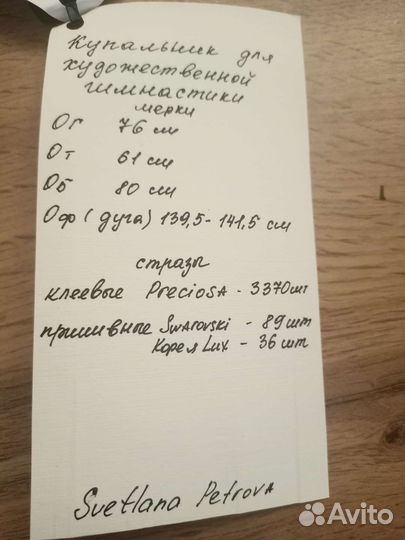 Купальник для
художественной
гимнастики
мерки
Ог 76 см
От 61 см
Об 80 см
Оф (дуга) 139,5-141,5 см
стразы
клеевые PreciosA - 3370шт
пришивные Swarovski - 89шт
Корея Lux - 36 шт
Svetlana PetrovA
Avito